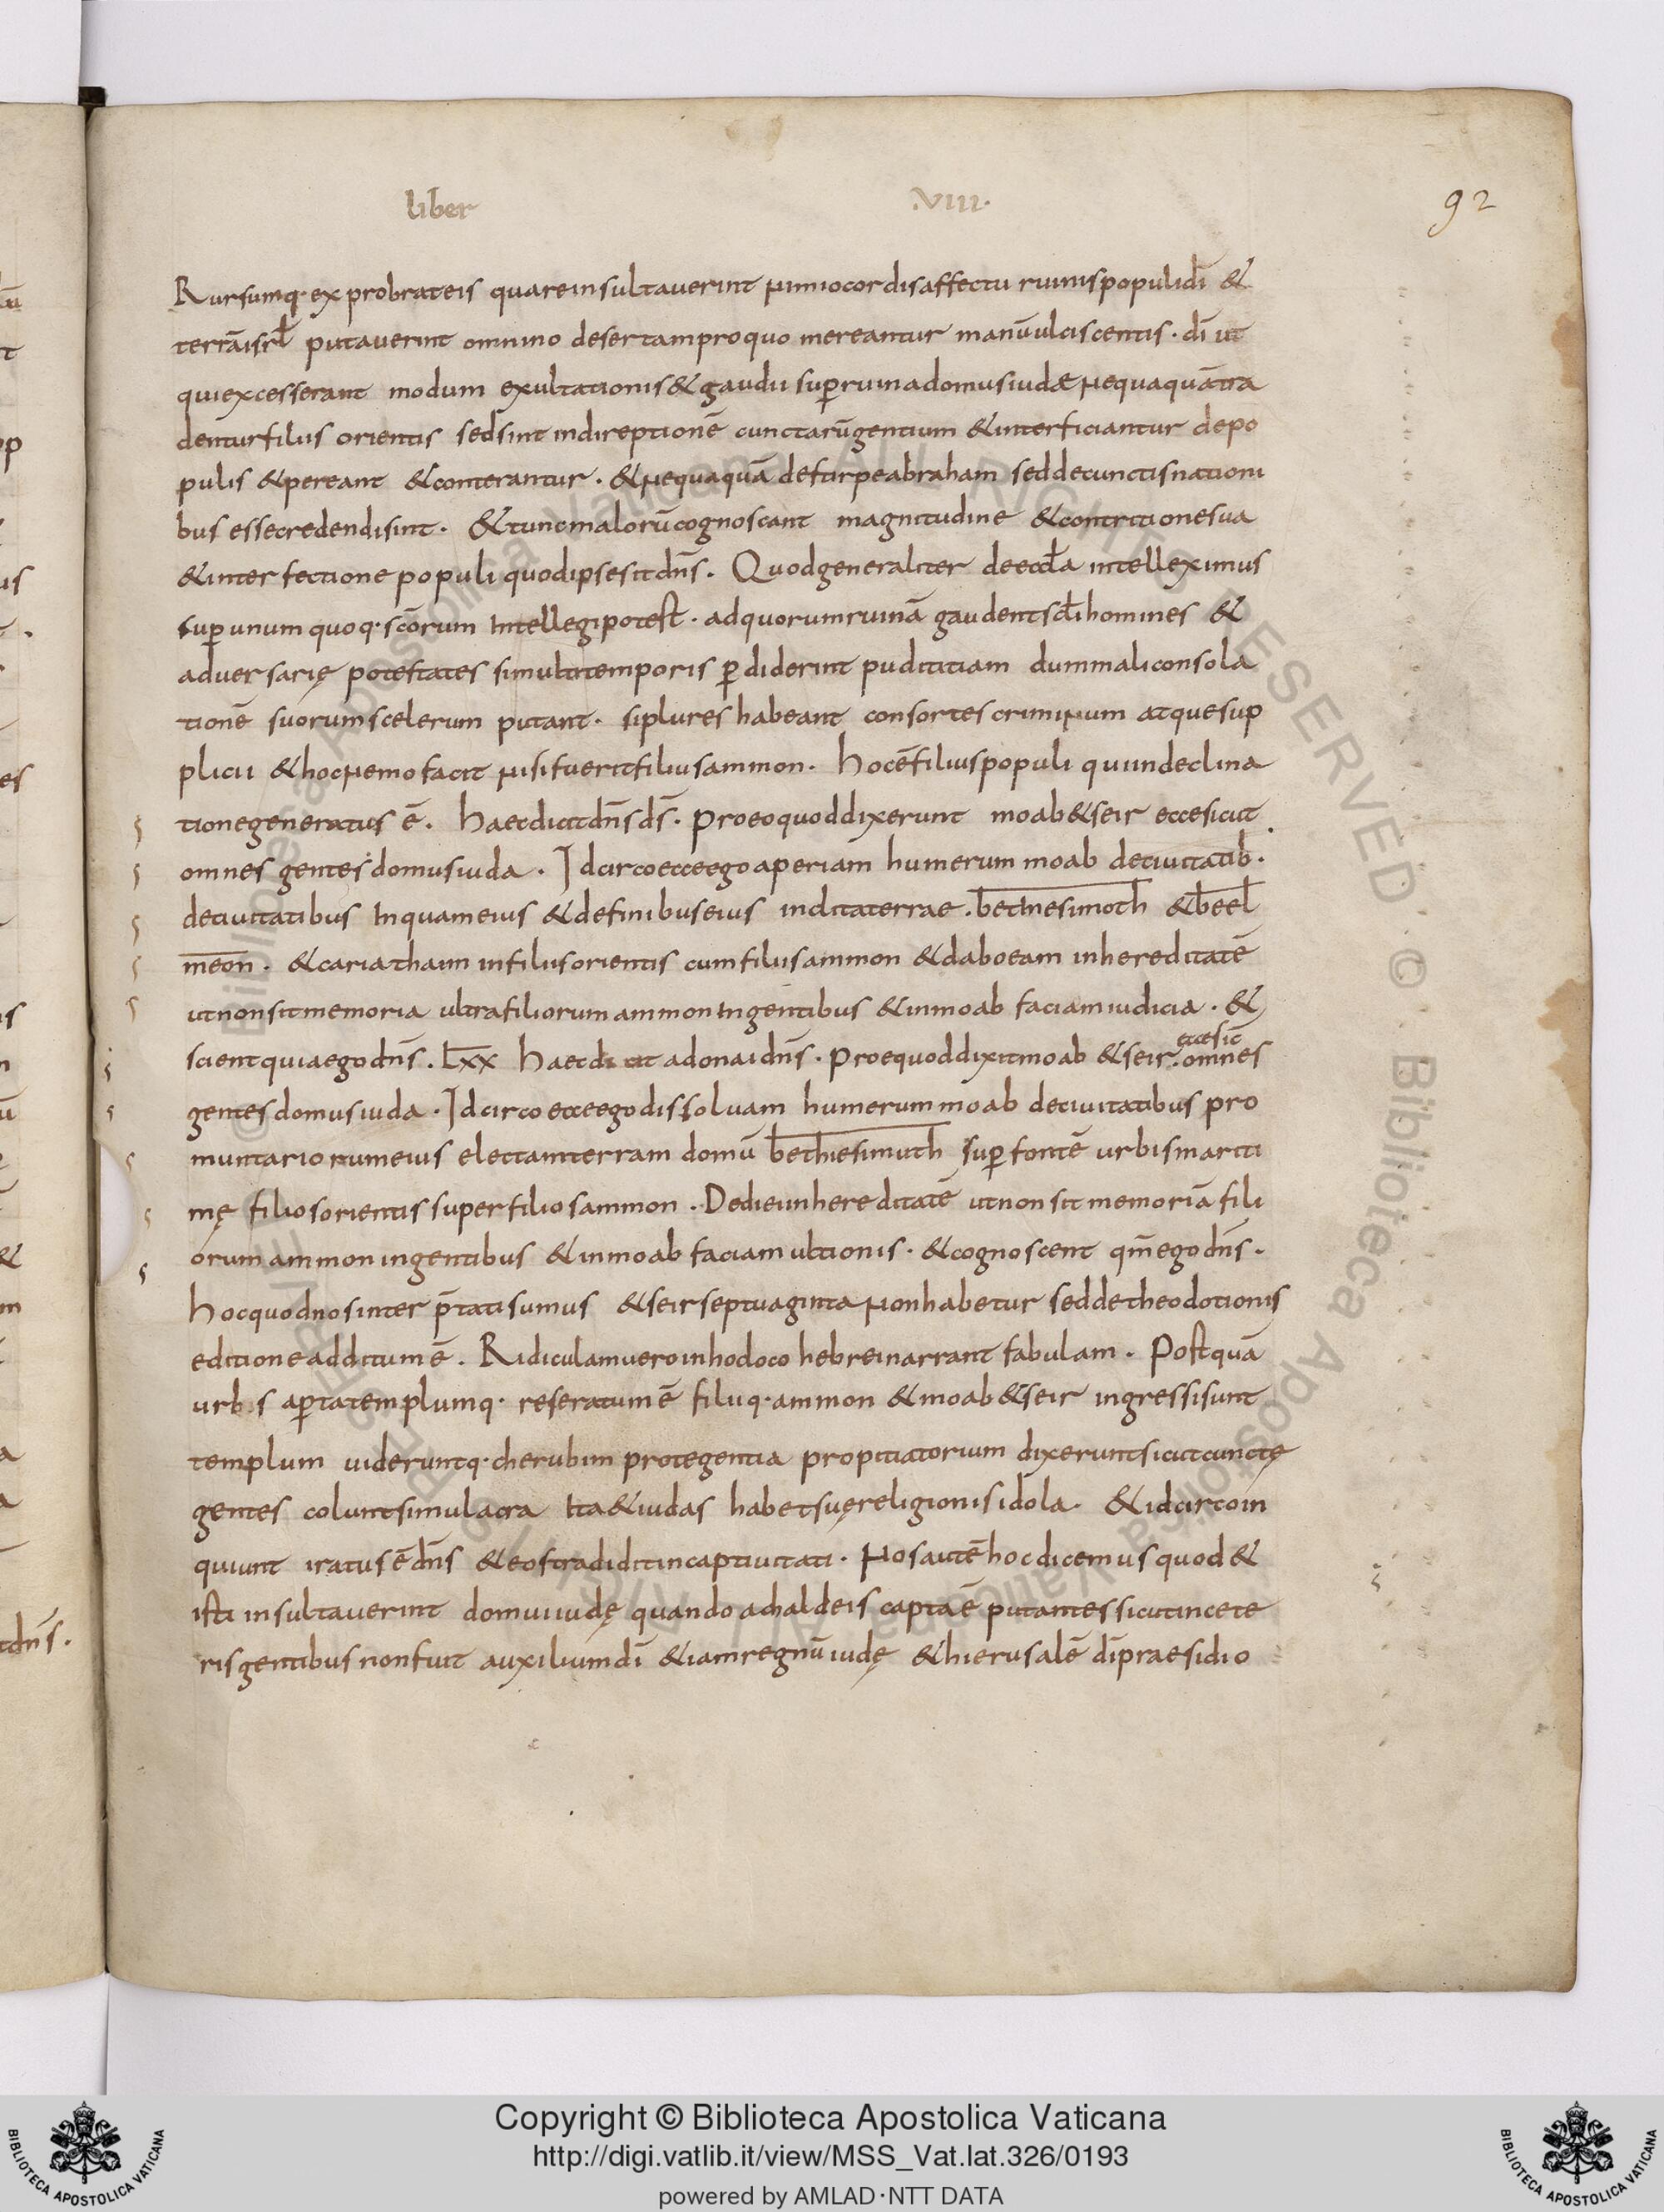 liber VIII.
92
Rursumq· exprobrat eis quare insultauerint nimio cordis affectu ruinis populi dī &
terrā isrł putauerint omnino desertam pro quo mereantur manū ulciscentis · dī ut
qui excesserant modum exultationis & gaudii suꝑ ruina domus iudæ nequaquā tra
dentur filiis orientis sed sint in direptionē cunctarū gentium & interficiantur de po
pulis & pereant & conterantur · & nequaquā de stirpe abraham sed de cunctis nationi
bus esse credendi sint · & tunc malorū cognoscant magnitudine & contritione sua
& interfectione populi quod ipse sit dn̄s. Quod generaliter de eccła intelleximus
suꝑ unumquoq· scōrum intellegi potest · ad quorum ruinā gaudent scłi homines &
aduersarię potestates simul ut temporis ꝑdiderint puditiciam dum mali consola
tionē suorum scelerum putant · si plures habeant consortes criminum atque sup
plicii & hoc nemo facit nisi fuerit filius ammon · hoc ē filius populi qui in declina
tione generatus ē . haec dicit dn̄s ds̄ · pro eo quod dixerunt moab & seir ecce sicut
omnes gentes domus iuda . Idcirco ecce ego aperiam humerum moab de ciuitatib·
de ciuitatibus inquam eius & de finibus eius inclita terrae . bethiesimoth & beel
meon · & cariathaim in filiis orientis cum filiis ammon & dabo eam in hereditatē
ut non sit memoria ultra filiorum ammon in gentibus & in moab faciam iudicia · &
scient quia ego dn̄s . Lxx haec dicit adonai dn̄s · pro equod dixit moab & seir . omnes
ecce sic
gentes domus iuda · Idcirco ecce ego dissoluam humerum moab de ciuitatibus pro
muntariorum eius electam terram domū bethiesimuth suꝑ fontē urbis mariti
mę filiosorientis super filios ammon . Dedi ei in hereditatē ut non sit memoriā fili
orum ammon in gentibus & in moab faciam ultionis · & cognoscent qm̄ ego dn̄s .
hoc quod nos interp̄tati sumus & seir septuaginta non habetur sed de theodotionis
editione additum ē . Ridiculam uero in hoc loco hebrei narrant fabulam . Postquā
urbis aꝑta templumq· reseratum ē filiiq· ammon & moab & seir ingressi sunt
templum uideruntq· cherubim protegentia propitiatorium dixerunt sicut cunctę
gentes colunt simulacra ita & iudas habet suę religionis idola · & idcirco in
quiunt iratus ē dn̄s & eos tradidit in captiuitati · nos autē hoc dicemus quod &
isti insultauerint domui iudę quando a chaldeis capta ē putantes sicut in cete
ris gentibus non fuit auxilium dī & iam regnū iudę & hierusalē dī praesidio
Copyright © Biblioteca Apostolica Vaticana
http://digi.vatlib.it/view/MSS_Vat.lat.326/0193
powered by AMLAD·NTT DATA
BIBLIOTECA APOSTOLICA VATICANA
BIBLIOTECA APOSTOLICA VATICANA